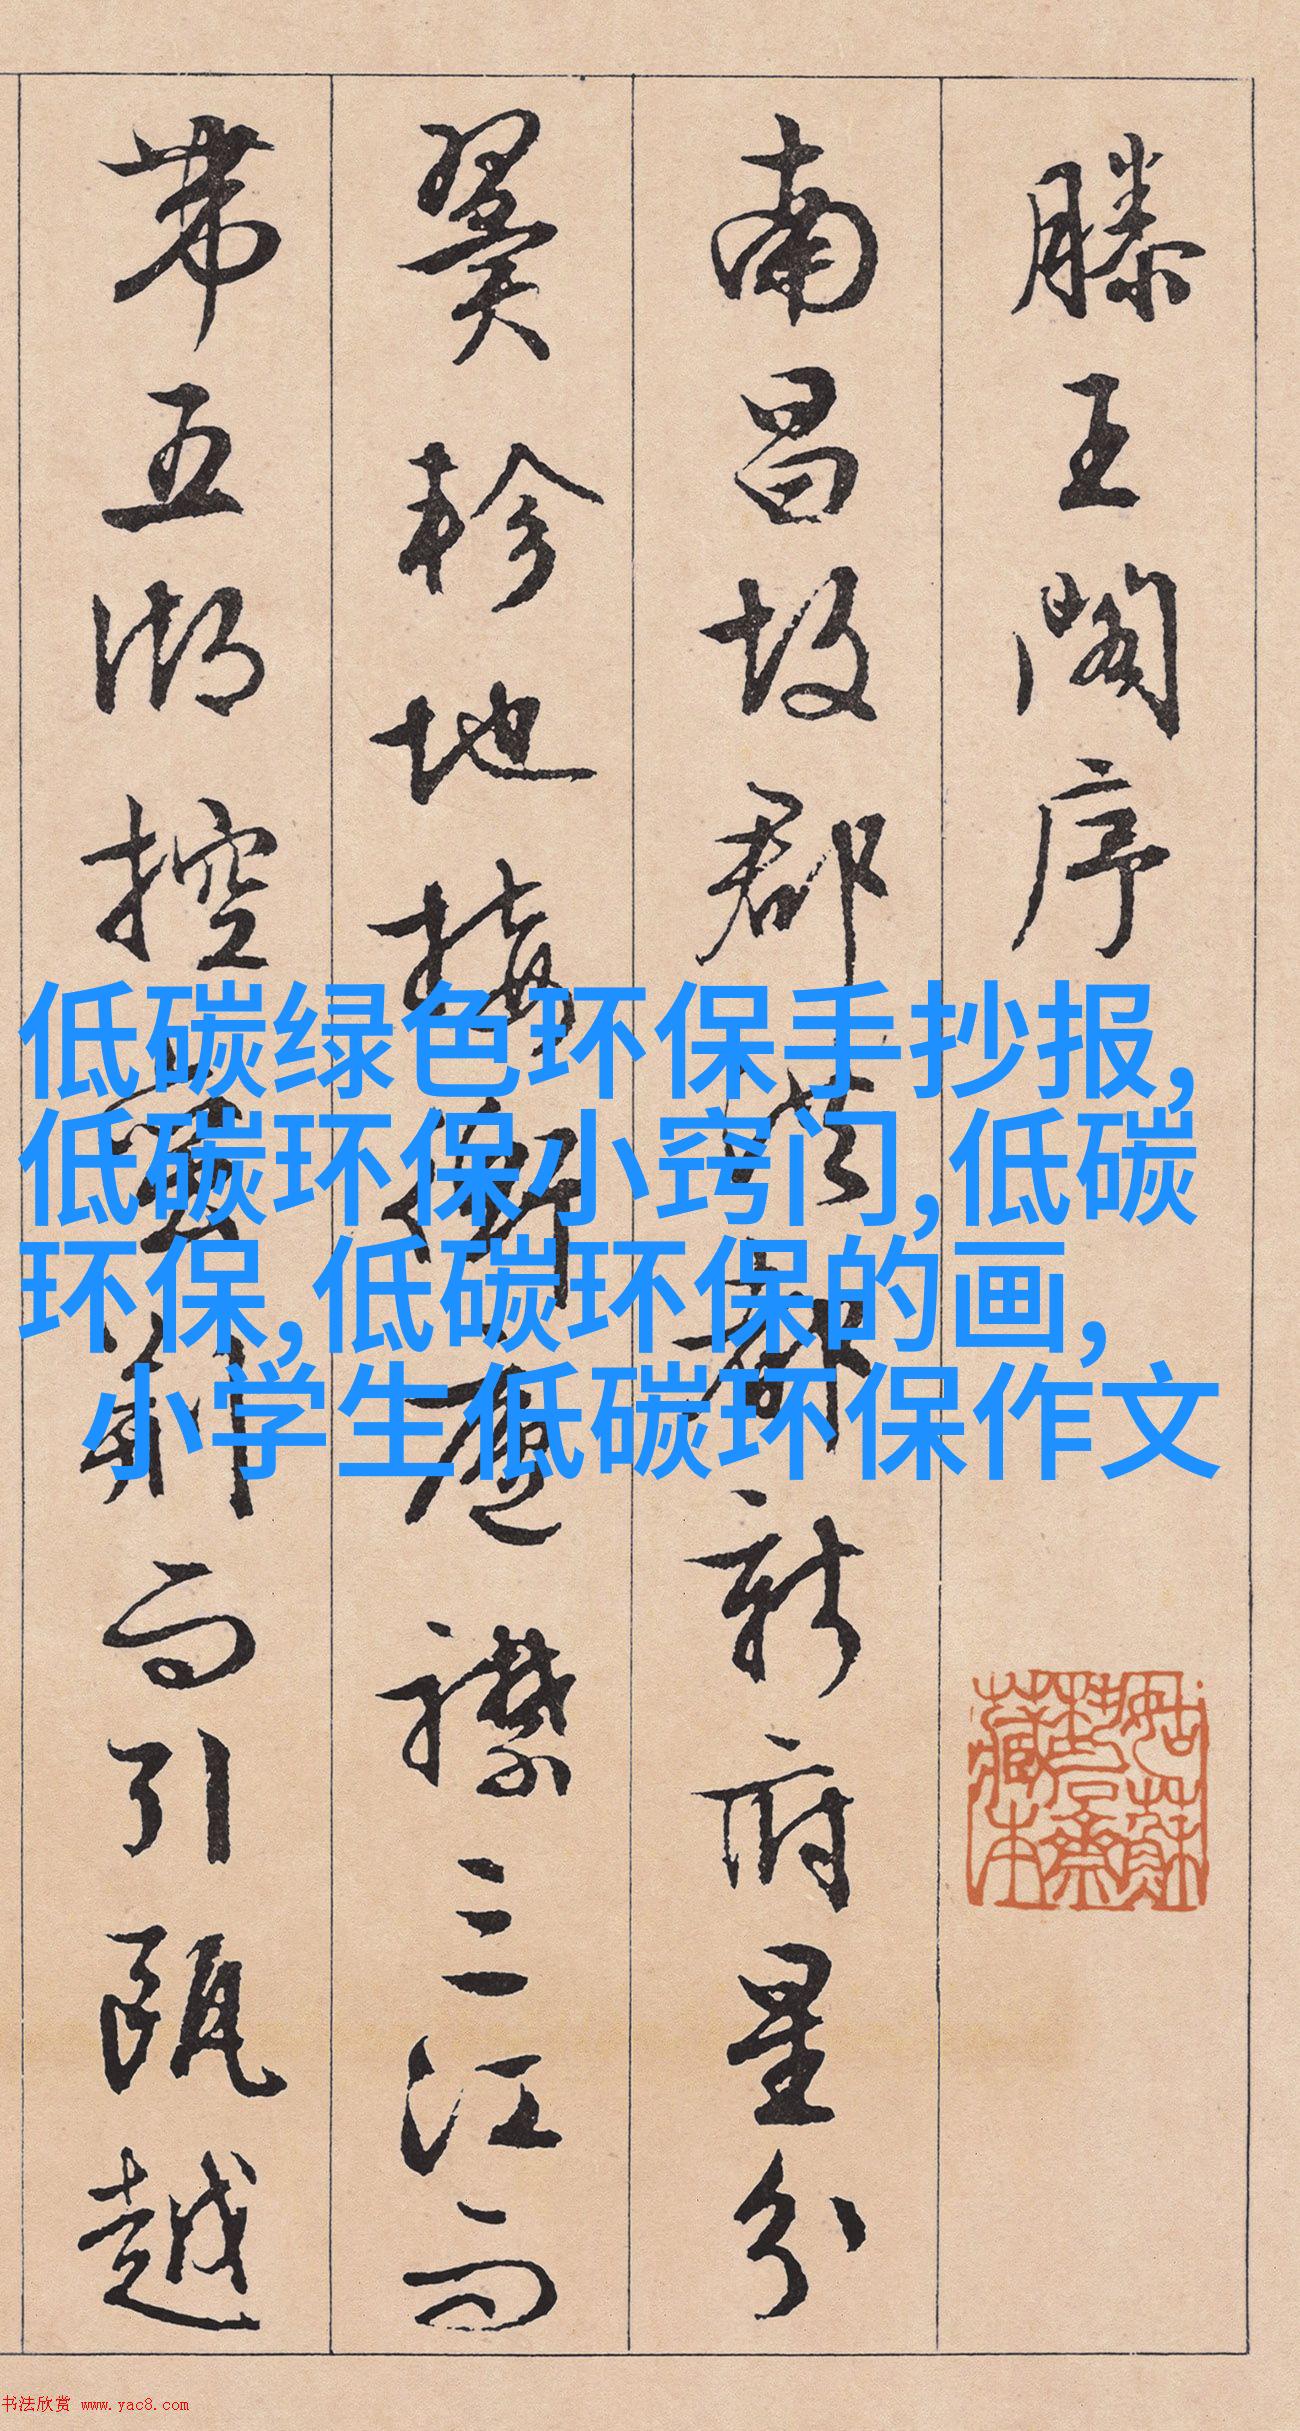 滕王阁序
南昌故郡洪都新府星分
翼轸地接衡庐襟三江而
带五湖控蛮荆而引瓯越
低碳绿色环保手抄报,
低碳环保小窍门,低碳
环保,低碳环保的画,
小学生低碳环保作文
书法欣赏 www.yac8.com